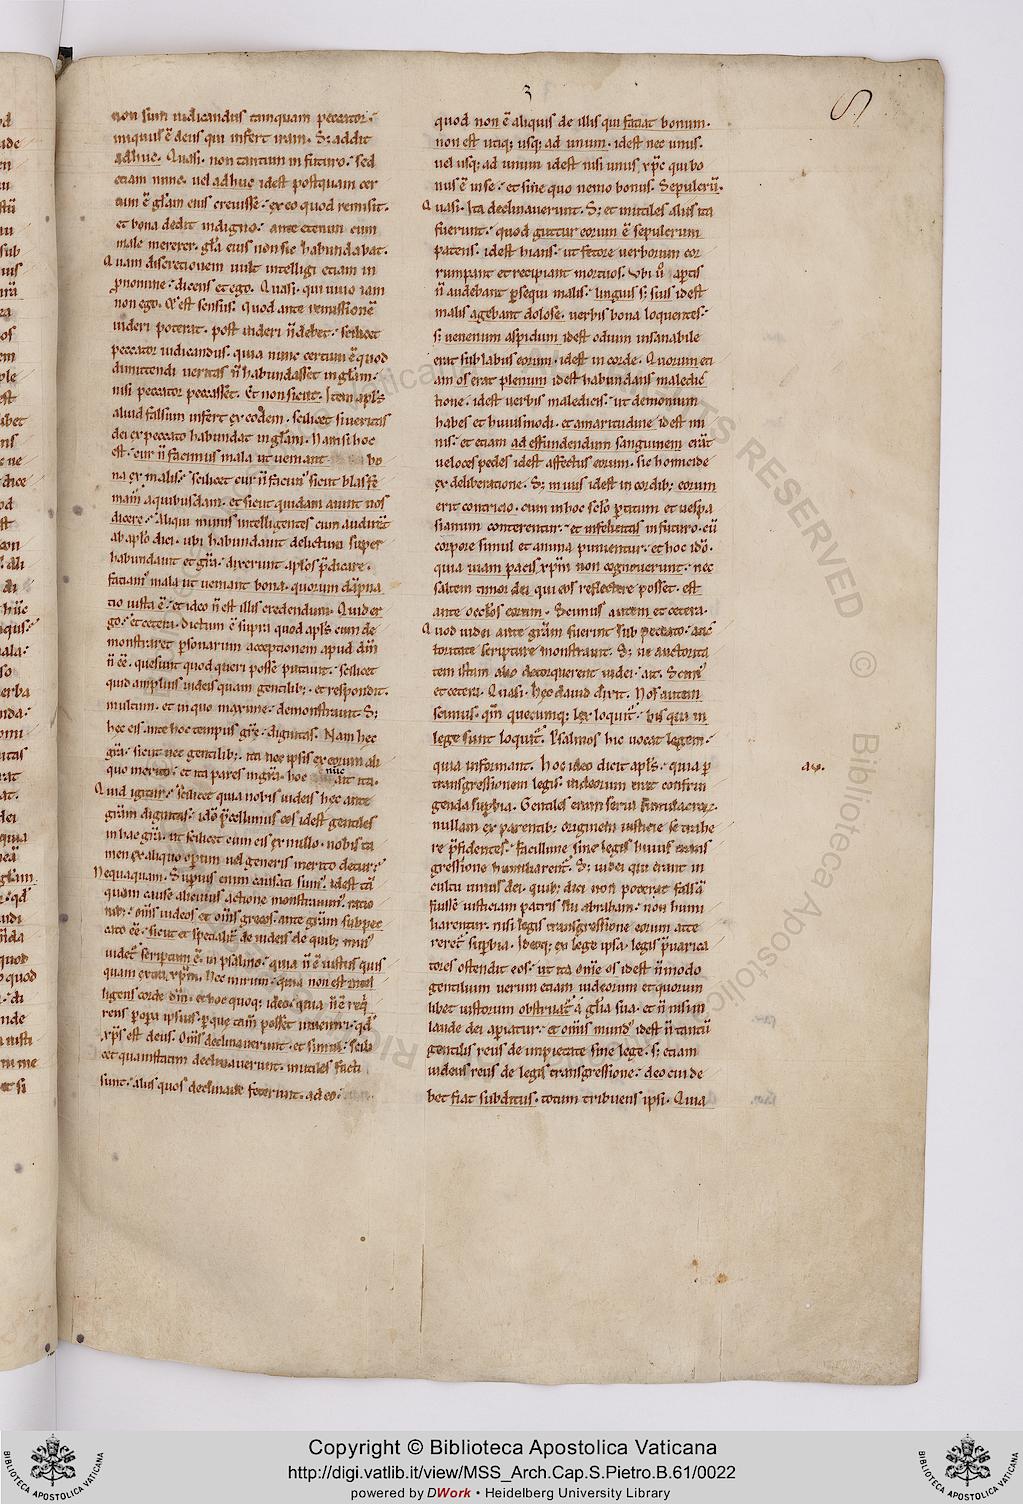 3
non sum iudicandus tamquam peccator.
iniquus ē deus qui infert iram. S; addit
adhuc. Quasi. non tantum in futuro. sed
etiam nunc. uel adhuc idest postquam cer
tum ē glām eius creuisse. ex eo quod remisit.
et bona dedit indigno. ante etenim cum
male mererer. glā eius non sic habundabat.
Quam discretionem uult intelligi etiam in
pronomine. dicens et ego. Quasi. qui uiuo iam
non ego. Quod ante remissionē
uideri poterat. post uideri n̄ debet. scilicet
peccator iudicandus. quia nunc certum ē quod
dimittendi ueritas n̄ habundasset in glām.
nisi peccator peccasset. Et non sicut. Item apl's
aliud falsum infert ex eodem. scilicet si ueritas
dei ex peccato habundat in glām. Nam si hoc
est. cur n̄ facimus mala ut ueniant bo
na ex malis. scilicet cur n̄ facim' sicut blasfē
mam' a quibusdam. et sicut quidam aiunt nos
dicere. Aliqui minus intelligentes cum audirēt
ab aplo dici. ubi habundauit delictum super
habundauit et grā. dixerunt aplos p̄dicare.
faciam' mala ut ueniant bona. quorum dāpna
tio iusta ē. et ideo n̄ est illis credendum. Quid er
go. et cetera. dictum ē supra quod apl's cum de
monstraret personarum acceptionem apud dm̄
n̄ ēē. quesiuit quod queri posse putauit. scilicet
quid amplius iudeis quam gentilib;. et respondit.
multum. et in quo maxime. demonstrauit. S;
hec eis ante hoc tempus grē. dignitas. Nam hec
grā. sicut nec gentilib;. ita nec ipsis ex eorum ali
quo merito. et ita pares in grā. hoc nūc ait ita.
Quid igitur. scilicet quia nobis iudeis hec ante
grām dignitas. ideo p̄cellimus eos idest gentiles
in hac grā. ut scilicet cum eis ex nullo. nobis ta
men ex aliquo operum uel generis merito detur.
Nequaquam. Superius enim causati sum'. idest tā
quam cause alicuius actione monstrauim'. ratio
nib;. om̄s iudeos et om̄s grecos. ante grām sub pec
cato ēē. sicut et specialit' de iudeis de quib; min'
uidet' scriptum ē. in psalmo. quia n̄ ē iustus quis
quam extra xpm̄. Nec mirum. quia non est intel
ligens corde dm̄. et hoc quoq; ideo. quia n̄ ē req̄
rens per opera ipsius. per que tam̄ posset inueniri. qd'
xps est deus. Om̄s declinauerunt. et simul. scili
cet quam statim declinauerunt. inutiles facti
sunt. aliis quos declinasse fecerunt. adeo.
quod non ē aliquis de illis qui faciat bonum.
non est utiq; usq; ad unum. idest nec unus.
uel usq; ad unum idest nisi unus xpc qui bo
nus ē in se. et sine quo nemo bonus. Sepulcrū.
Quasi. Ita declinauerunt. S; et inutiles aliis ita
fuerunt. quod guttur eorum ē sepulcrum
patens. idest hians. ut fetore uerborum cor
rumpant et recipiant mortuos. Ubi u° apertis
n̄ audebant persequi malis. linguis s; suis idest
malis agebant dolose. uerbis bona loquentes.
s; uenenum aspidum idest odium insanabile
erat sub labiis eorum. idest in corde. Quorum eti
am os erat plenum idest habundans maledic
tione. idest uerbis maledicis. ut demonium
habes et huiusmodi. et amaritudine idest mi
nis. et etiam ad effundendum sanguinem erāt
ueloces pedes idest affectus eorum. sic homicide
ex deliberatione. S; in uiis idest in cordib; eorum
erit contricio. cum in hoc sclo per titum et uespa
sianum conterentur. et infelicitas in futuro. cū
corpore simul et anima punientur. et hoc ideo.
quia uiam pacis xpm̄ non cognouerunt. nec
saltem timor dei qui eos reflectere posset. est
ante oculos eorum. Scimus autem et cetera.
Quod iudei ante grām fuerint sub peccato. auc
toritate scripture monstrauit. S; ne auctorita
tem istam alio detorquerent iudei. ait. Scim'
et cetera. Quasi. Hec dauid dixit. Nos autem
scimus. qm̄ quecumq; lex loquit'. his qui in
lege sunt loquit'. Psalmos hic uocat legem.
quia informant. Hoc ideo dicit apl's. quia per
transgressionem legis. iudeorum erat confrin
genda superbia. Gentiles enim serui simulacror'
nullam ex parentib; originem iusticie se trahe
re p̄fidentes. facillime sine legis huius trans
gressione humiliarent'. S; iudei qui erant in
cultu unius dei. quib; dici non poterat falsā
fuisse iusticiam patris sui abraham. non humi
liarentur. nisi legis transgressione eorum atte
reret' superbia. Ideoq; ex lege ipsa. legis p̄uarica
tores ostendit eos. ut ita om̄e os idest n̄ modo
gentilium uerum etiam iudeorum et quorum
libet iustorum obstruat' a glā sua. et n̄ nisi in
laude dei aperiatur. et om̄is mund' idest n̄ tantū
gentilis reus de impietate sine lege. s; etiam
iudeus reus de legis transgressione. deo cui de
bet fiat subditus. totum tribuens ipsi. Quia
aug.
Copyright © Biblioteca Apostolica Vaticana
http://digi.vatlib.it/view/MSS_Arch.Cap.S.Pietro.B.61/0022
powered by DWork • Heidelberg University Library
BIBLIOTECA APOSTOLICA VATICANA
BIBLIOTECA APOSTOLICA VATICANA